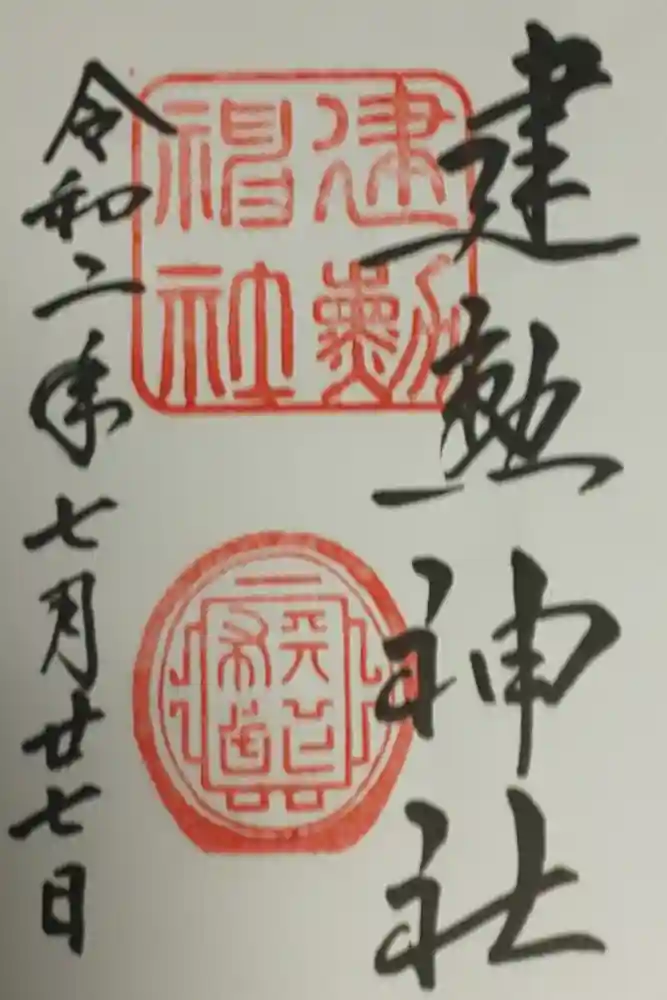 建勲神社
建勲
神社
令和二年七月廿七日